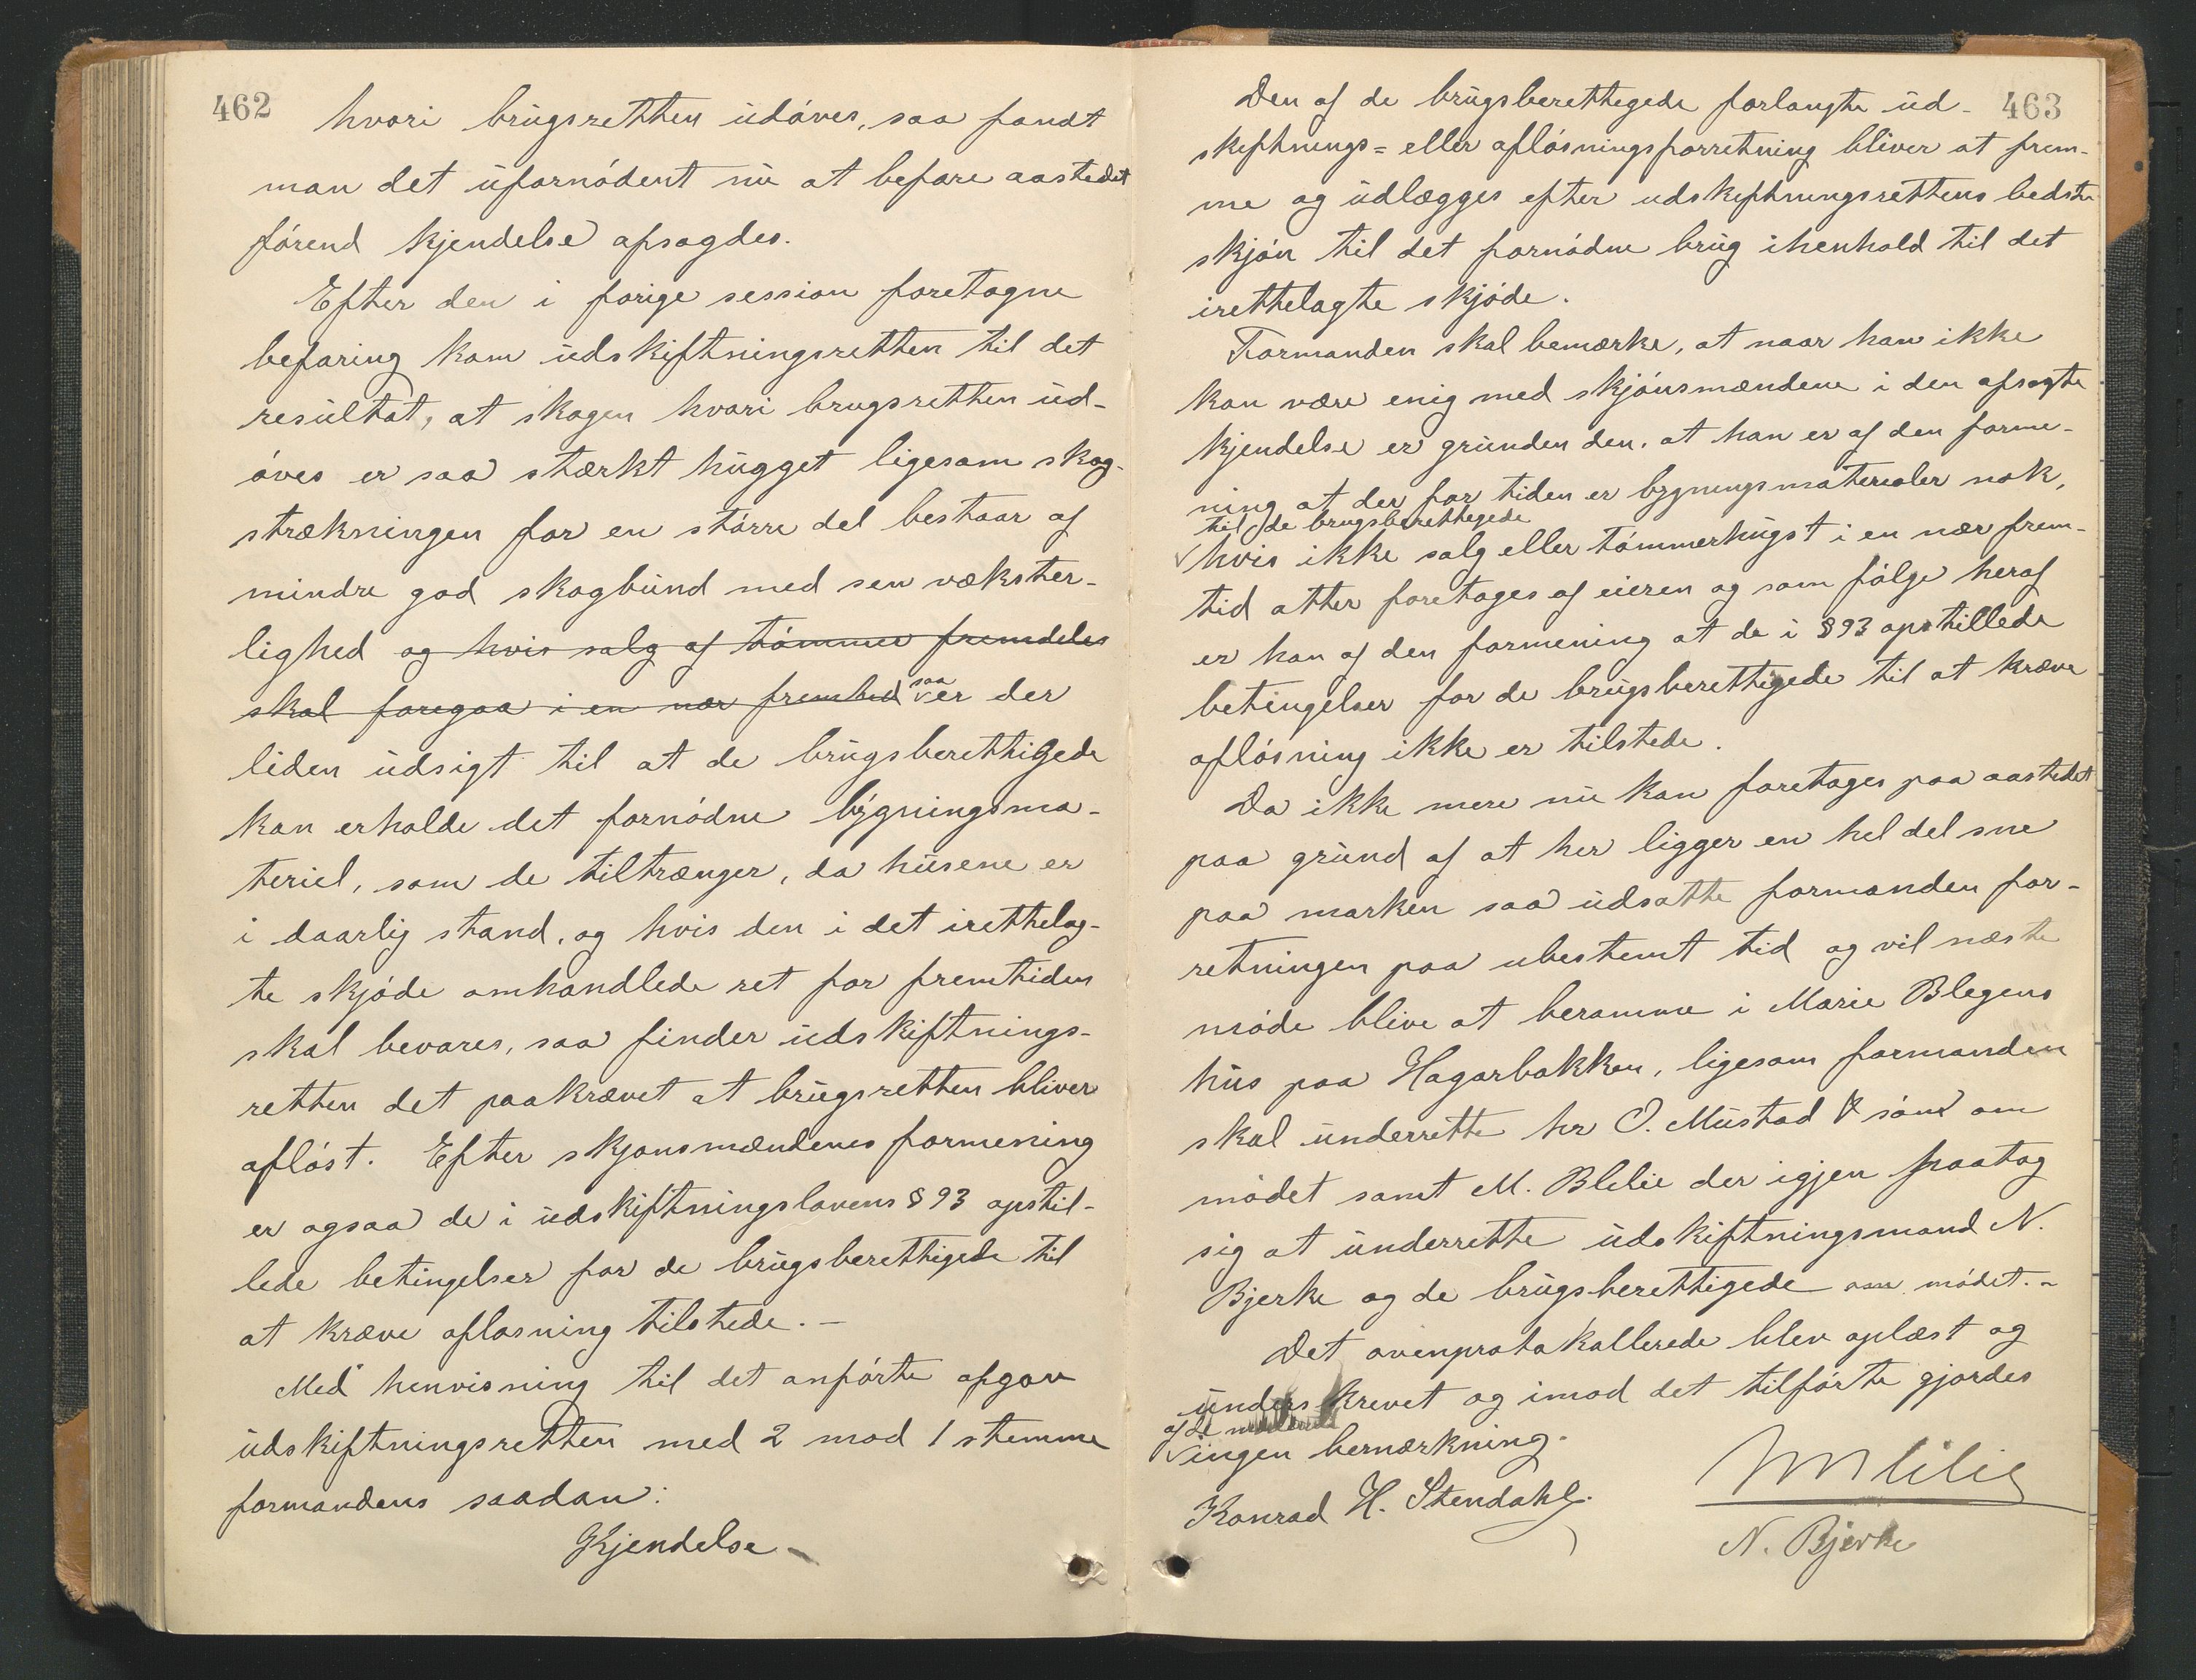 462
hvori brugsretten udøves, saa fandt
man det ufornødent nu at befare aastedet
førend kjendelse afsagdes.
Efter den i forige session foretagne
befaring kom udskiftningsretten til det
resultat, at skogen hvori brugsretten ud-
øves er saa stærkt hugget ligesom skog-
strækningen for en større del bestaar af
mindre god skogbund med sen vækster-
lighed og hvis salg af tømmer fremdeles
skal foregaa i en nær fremtid saa er der
liden udsigt til at de brugsberettigede
kan erholde det fornødne bygningsma-
teriel, som de tiltrænger, da husene er
i daarlig stand, og hvis den i det irettelag-
te skjøde omhandlede ret for fremtiden
skal bevares, saa finder udskiftnings-
retten det paakrævet at brugsretten bliver
afløst. Efter skjønsmændenes formening
er ogsaa de i udskiftningslovens § 93 opstil-
lede betingelser for de brugsberettigede til
at kræve afløsning tilstede. -
Med henvisning til det anførte afgav
udskiftningsretten med 2 mod 1 stemme
formandens saadan:
Kjendelse -
463
Den af de brugsberettegede forlangte ud-
skiftnings= eller afløsningsforretning bliver at frem-
me og udlægges efter udskiftningsrettens bedste
skjøn til det fornødne brug ihenhold til det
irettelagte skjøde.
Formanden skal bemærke, at naar han ikke
kan være enig med skjønsmændene i den afsagte
kjendelse er grunden den, at han er af den forme-
ning at der for tiden er bygningsmaterialer nok,
til de brugsberettegede
hvis ikke salg eller tømmerhugst i en nær frem-
tid atter foretages af eieren og som følge heraf
er han af den formening at de i § 93 opstillede
betingelser for de brugsberettigede til at kræve
afløsning ikke er tilstede.
Da ikke mere nu kan foretages paa aastedet
paa grund af at her ligger en hel del sne
paa marken saa udsatte formanden for-
retningen paa ubestemt tid og vil næste
møde blive at beramme i Marie Blegens
hus paa Hagarbakken, ligesom formanden
skal underrette hr O. Mustad & søn om
mødet samt M. Blilie der igjen paatog
sig at underrette udskiftningsmand N.
Bjerke og de brugsberettigede om mødet. -
Det ovenprotokollerede blev oplæst og
underskrevet og imod det tilførte gjordes
af de
ingen bemærkning.
Konrad H. Stendahl.
M Lilie
N. Bjerke